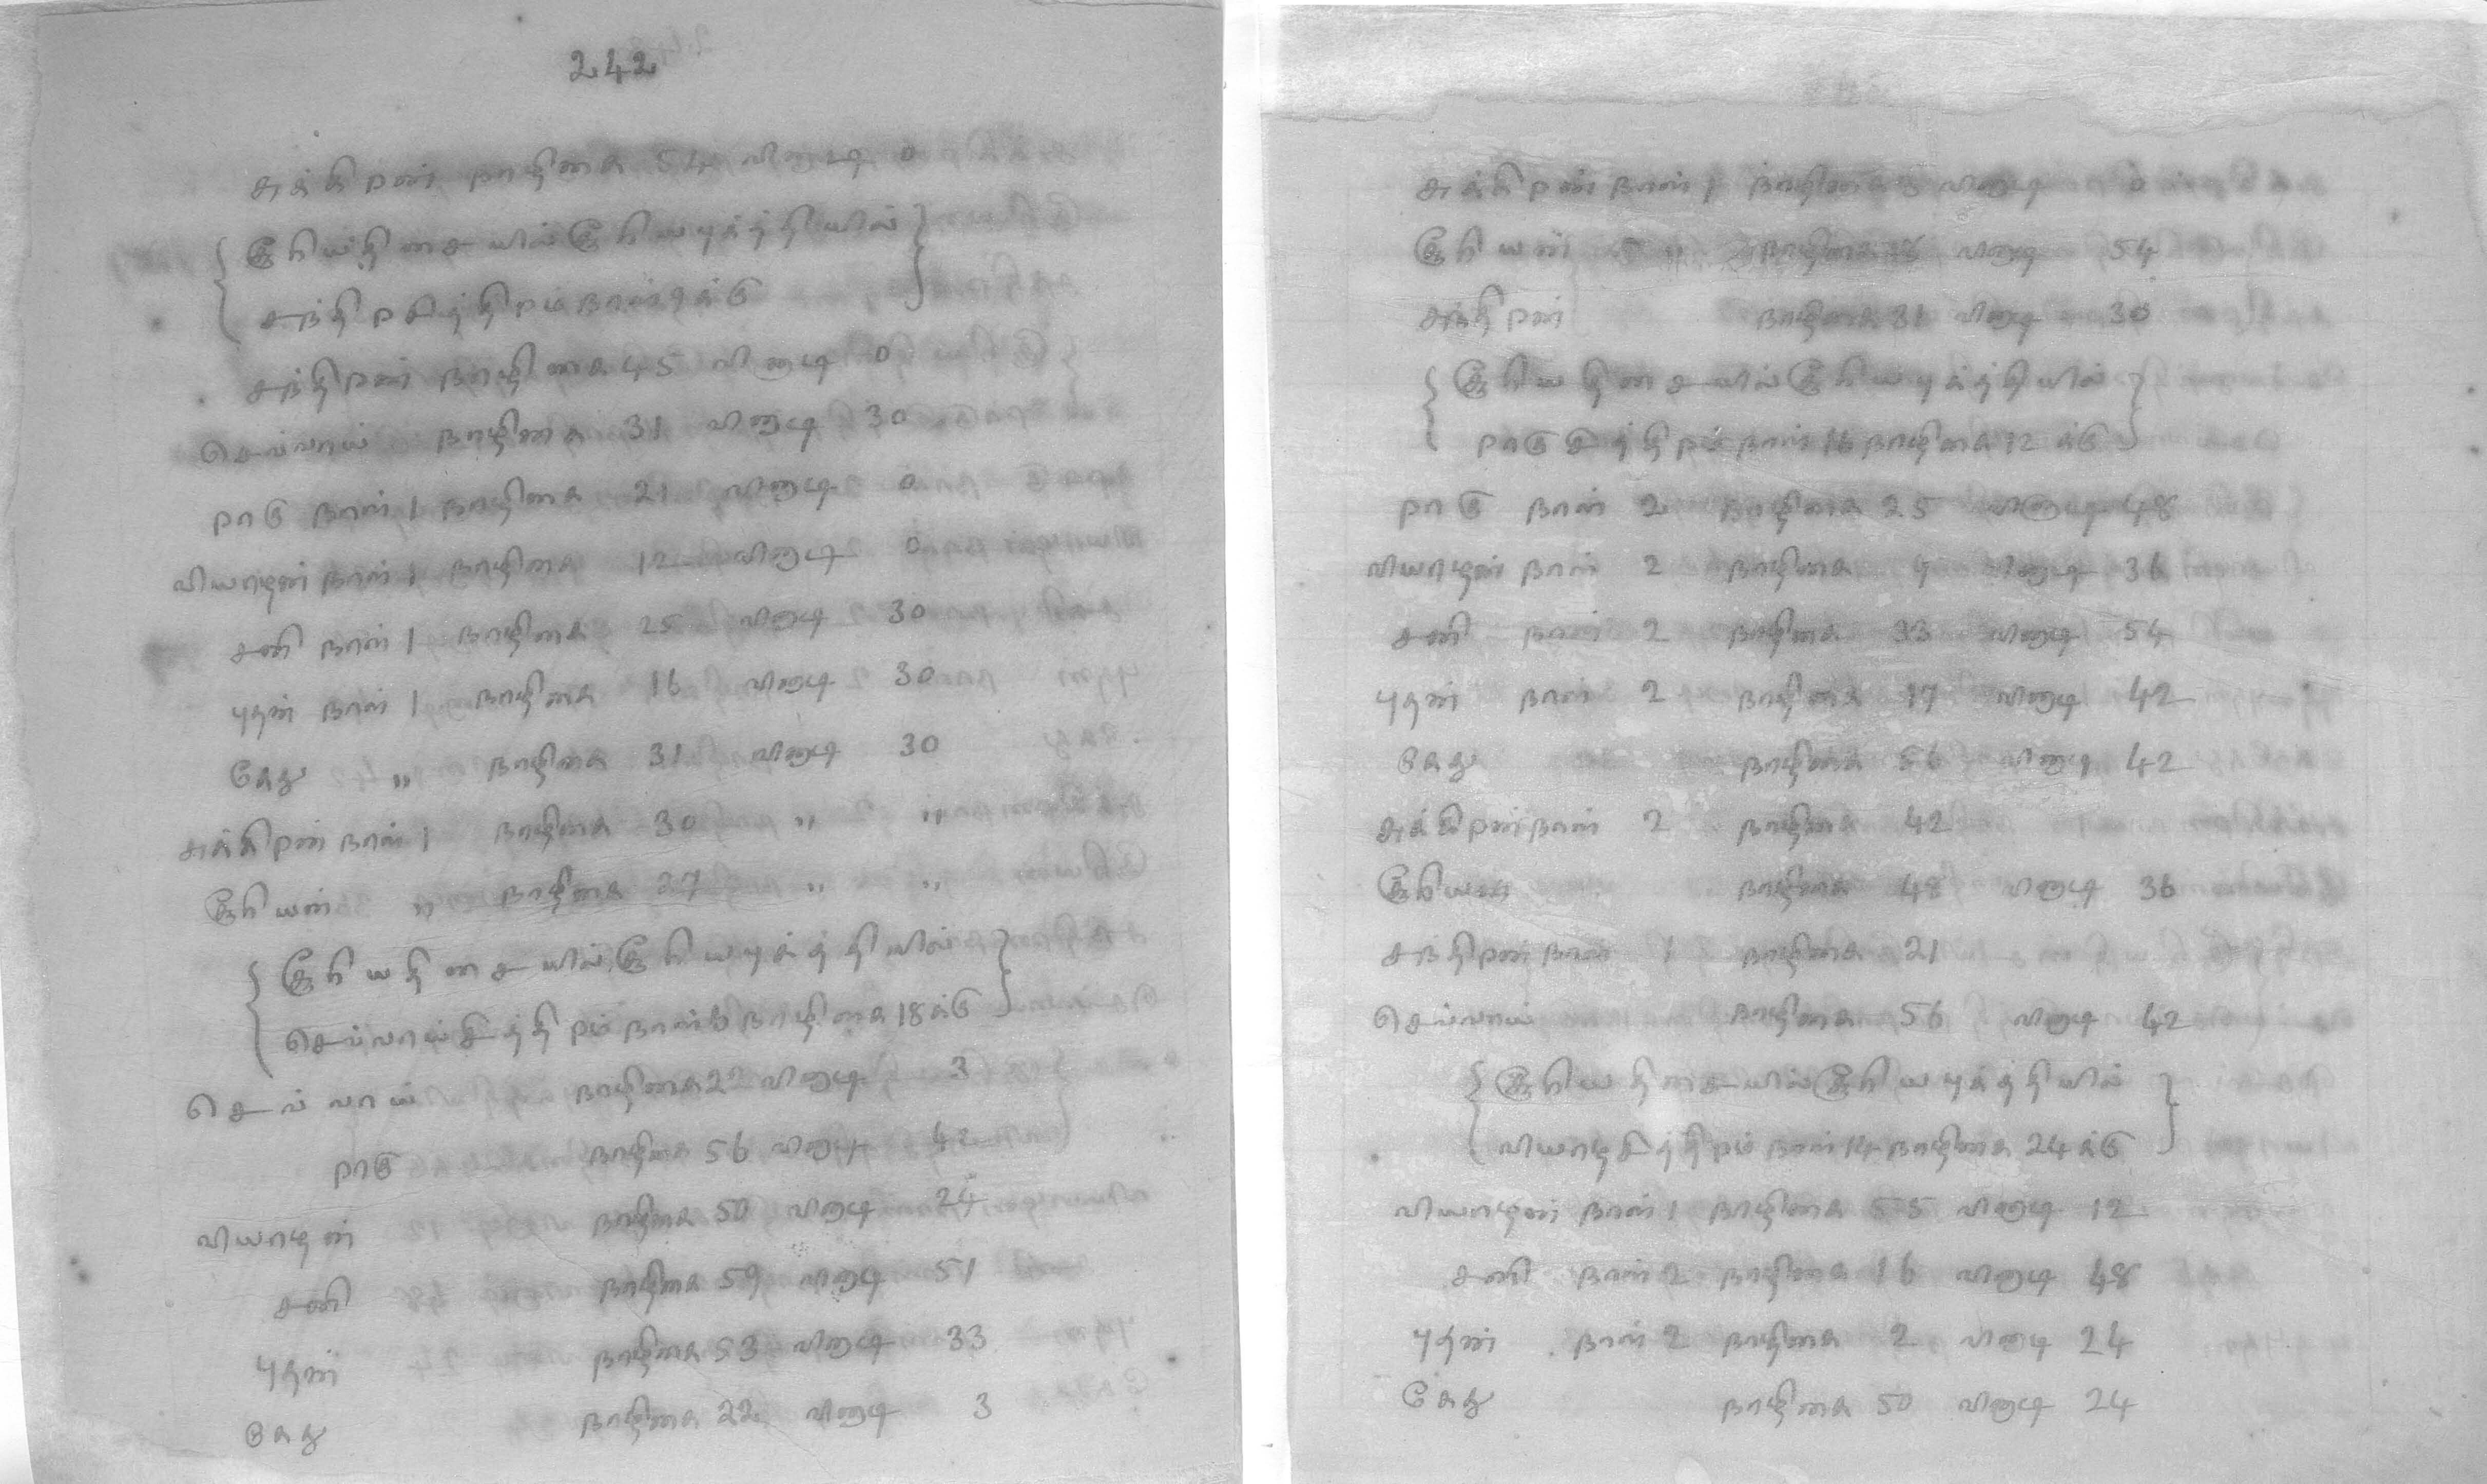 242
சுக்கிரன் நாழிகை 54 விநாடி 0
{ சூரியதிசையில் சூரியபுத்தியில் }
சந்திரசித்திரம் நாள் 9க்கு
சந்திரன் நாழிகை 45 விநாடி 0
செவ்வாய் நாழிகை 31 விநாடி 30
ராகு நாள் 1 நாழிகை 21 விநாடி 0
வியாழன் நாள் 1 நாழிகை 12 விநாடி 0
சனி நாள் 1 நாழிகை 25 விநாடி 30
புதன் நாள் 1 நாழிகை 16 விநாடி 30
கேது " நாழிகை 31 விநாடி 30
சுக்கிரன் நாள் 1 நாழிகை 30 " "
சூரியன் " நாழிகை 27 " "
{ சூரியதிசையில் சூரியபுத்தியில் }
செவ்வாய்சித்திரம் நாள் 6 நாழிகை 18க்கு
செவ்வாய் நாழிகை 22 விநாடி 3
ராகு நாழிகை 56 விநாடி 42
வியாழன் நாழிகை 50 விநாடி 24
சனி நாழிகை 59 விநாடி 51
புதன் நாழிகை 53 விநாடி 33
கேது நாழிகை 22 விநாடி 3
சுக்கிரன் நாள் 1 நாழிகை 3 விநாடி 0
சூரியன் " நாழிகை 18 விநாடி 54
சந்திரன் நாழிகை 31 விநாடி 30
{ சூரியதிசையில் சூரியபுத்தியில் }
ராகுசித்திரம் நாள் 16 நாழிகை 12க்கு
ராகு நாள் 2 நாழிகை 25 விநாடி 48
வியாழன் நாள் 2 நாழிகை 9 விநாடி 36
சனி நாள் 2 நாழிகை 33 விநாடி 54
புதன் நாள் 2 நாழிகை 17 விநாடி 42
கேது நாழிகை 56 விநாடி 42
சுக்கிரன் நாள் 2 நாழிகை 42
சூரியன் நாழிகை 48 விநாடி 36
சந்திரன் நாள் 1 நாழிகை 21
செவ்வாய் நாழிகை 56 விநாடி 42
{ சூரியதிசையில் சூரியபுத்தியில் }
வியாழசித்திரம் நாள் 14 நாழிகை 24க்கு
வியாழன் நாள் 1 நாழிகை 55 விநாடி 12
சனி நாள் 2 நாழிகை 16 விநாடி 48
புதன் நாள் 2 நாழிகை 2 விநாடி 24
கேது நாழிகை 50 விநாடி 24